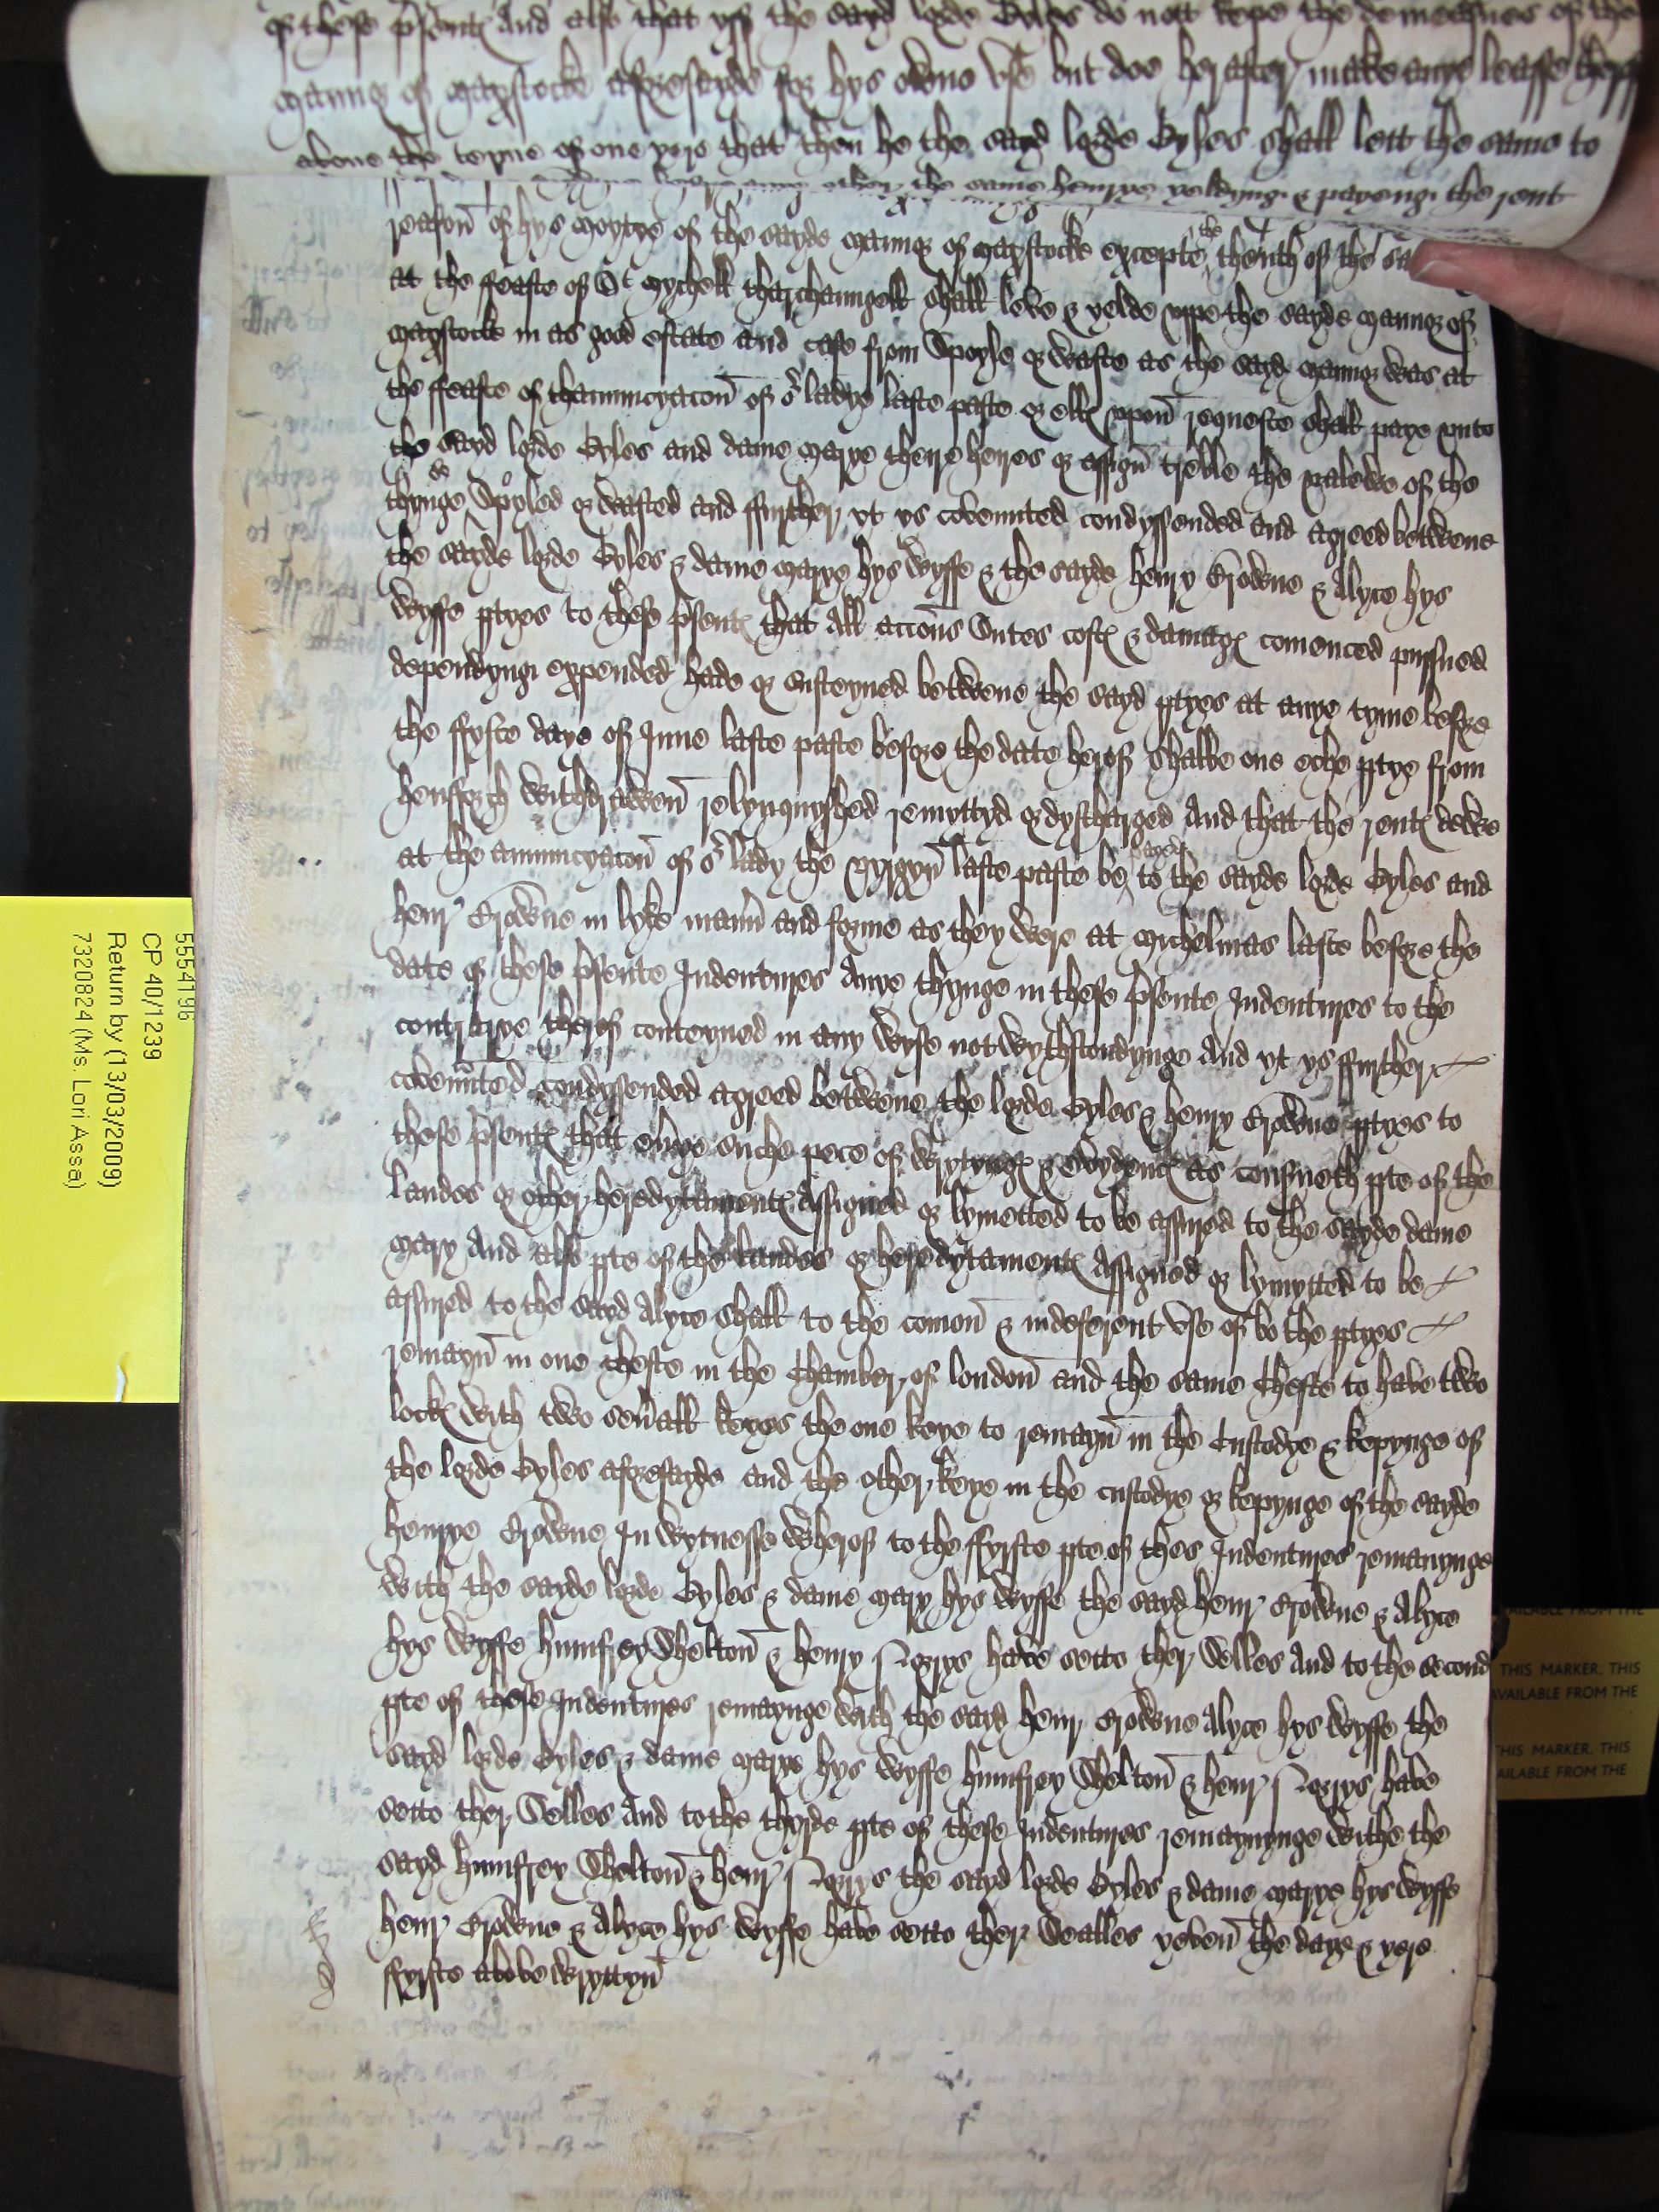 of these psent And also that yff the sayd lorde Gyles do nott kepe the demeasnes of the
manor of maxstocke aforesayde for hys owne vse but doe herafter make anye leasse therof
above the terme of one yere that then he the sayd lorde Gyles shall lett the same to
before any other the same henrye yeldyng & payeng the rent
reason of hys moytye of the sayde manor of maxstocke excepte the tenth of the sa
at the feaste of St mychell tharchaungell shall leve & yelde vppe the sayde manor of
maxstocke in as good estate and case from Spoyle or waste as the sayd manor was at
the ffeaste of thannuncyacon of or ladye laste paste or elles vpon requeste shall paye vnto
the sayd lorde Gyles and dame marye theire heires or assign treble the valewe of the
thynge so Spoyled or wasted and ffurther yt ys covennted condyssended and agreed betwene
the sayde lorde Gyles & dame marye hys wyffe & the sayde henry Crowne & Alyce hys
wyffe ptyes to these psent that All accons Sutes cost & damag comenced pursued
dependyng expended hade or susteyned betwene the sayd ptyes at anye tyme before
the ffyste daye of June laste paste before the date herof shalbe one eche ptye from
hensforth withdrawen relynquyshed remyttyd & dyscharged And that the rent dewe
at the annuncyacon of or lady the vyrgyn laste paste be payde to the sayde lorde Gyles and
henr Crowne in lyke mann and forme as they were at michelmas laste before the
date of these psente Indentures Anye thynge in these psente Indentures to the
contrarye therof conteyned in any wyse notwythstondynge And yt ys ffurther
covennted condyssended agreed betwene the lorde Gyles & henry Crowne ptyes to
these psent that evrye suche pece of wrytyng & evydenc as consneth pte of the
landes or other heredytament Assigned or lymetted to be assured to the sayde dame
mary And also pte of the landes or heredytament Assigned or lymytted to be
assured to the sayd Alyce shall to the comon & indeferent vse of bothe ptyes
remayn in one cheste in the Chamber of london and the same Cheste to have two
lock with two sevall keyes the one keye to remayn in the Custodye & kepynge of
the lorde Gyles aforesayde and the other keye in the custodye or kepynge of the sayde
henrye Crowne In wytnesse wherof to the ffyrste pte of thes Indentures remanynge
with the sayde lorde Gyles & dame mary hys wyffe the sayd henr Crowne & Alyce
hys wyffe humfrey Shelton & henry Norrys have sette ther Selles And to the second
pte of these Indentures remaynge with the sayd henr Crowne Alyce hys wyffe the
sayd lorde Gyles & dame marye hys wyffe humfrey Shelton & henr Norrys have
sette ther Selles And to the thyrde pte of these Indentures remaynynge withe the
sayd humfrey Shelton & henr Norrys the sayd lorde Gyles & dame marye hys wyffe
henr Crowne & Alyce hys wyffe have sette ther Sealles yeven the daye & yere
ffyrste above wryttyn
5554196
CP 40/1239
Return by (13/03/2009)
7320824 (Ms. Lori Asse)
AILABLE FROM THE
THIS MARKER. THIS
AVAILABLE FROM THE
THIS MARKER. THIS
AILABLE FROM THE